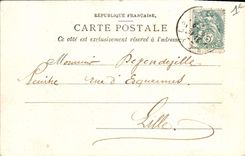 RÉPUBLIQUE FRANÇAISE
CARTE POSTALE
Ce côté est exclusivement réservé à l'adresse
Monsieur Degendzille
Peintre rue d'Esquermes
Lille